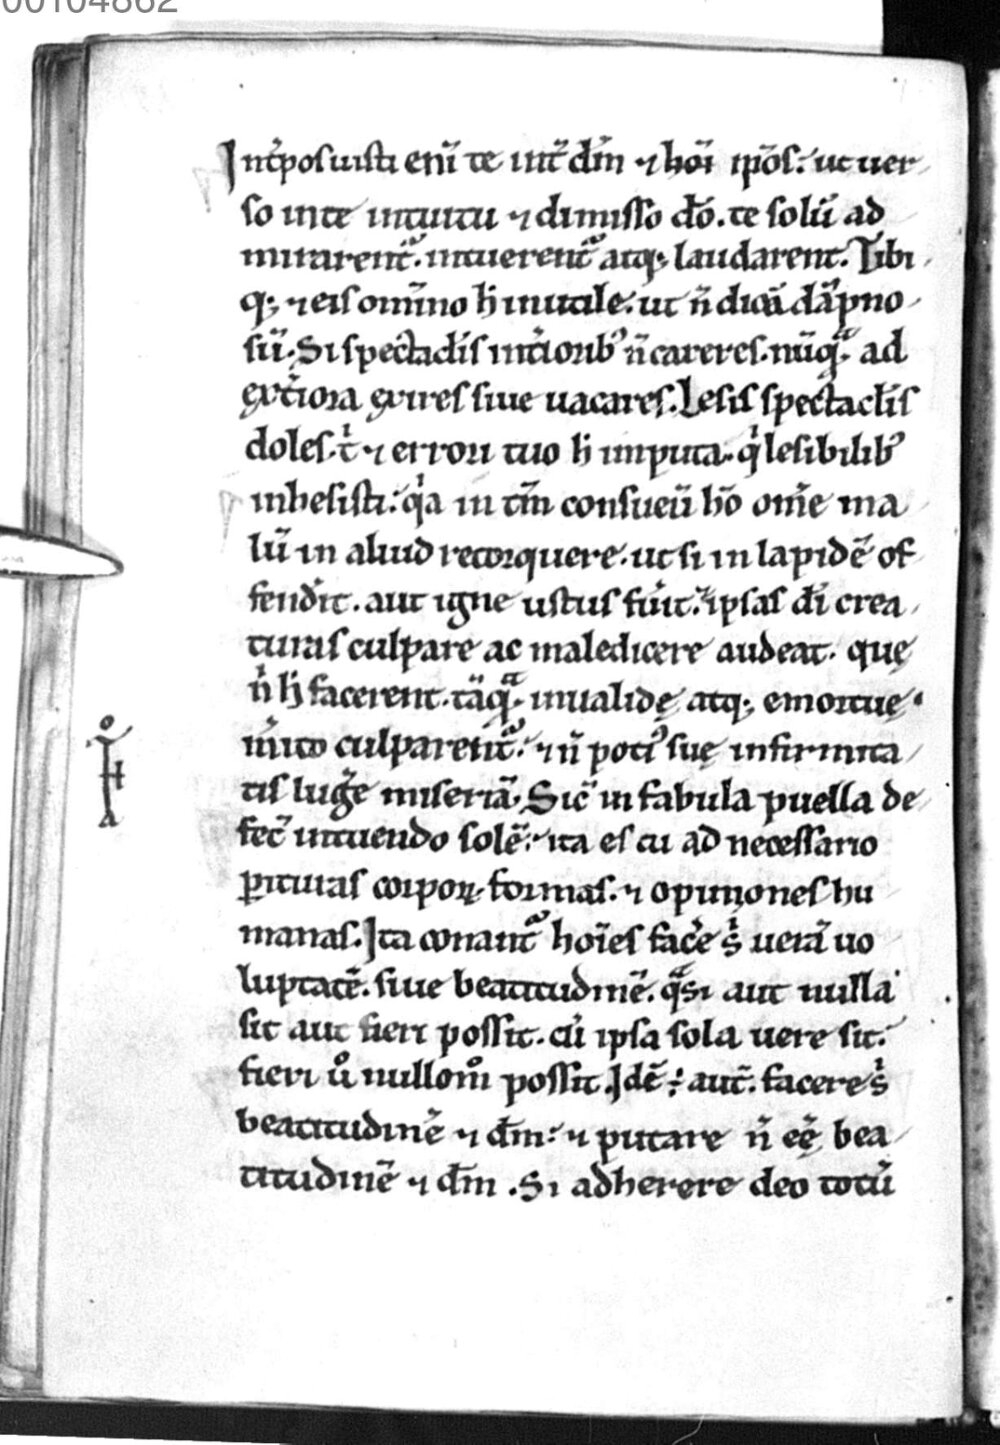 00104862
Int̾posuisti eni̅ te int̾ dm̅ ⁊ hoi̅ ip̅os: ut uer
so in te intuitu ⁊ dimisso do̅. te solu̅ ad
mirarent᷑. intuerent᷑ atq; laudarent. Tibi
q; ⁊ eis omi̅no h̅ inutile. ut n̅ dica̅ da̅pno
su̅. Si spectac̅lis int̾iorib᷒ n̅ careres. nu̅qᷓ ad
ext̾iora exires siue uacares. Lesis spectac̅lis
doles. t̾ ⁊ errori tuo h̅ imputa. qͥ lesibilib᷒
inhesisti: qͥa in tm̅ consueu̅ ho̅ om̅e ma
lu̅ in aliud retorquere. ut si in lapide̅ of
fenderit. aut igne ustus fu̾it: ipsas di̅ crea
turas culpare ac maledicere audeat. quę
n̅ h̅ facerent. ta̅qᷓ inualidę atq; emortuę
in̾ito culparent᷑: ⁊ n̅ poti᷒ suę infirmita
tis luge̾e miseria̅. Sic̅ in fabula puella de
fec̅ intuendo sole̅: ita es tu ad necessario
ꝑituras corpoꝝ formas. ⁊ opiniones hu
manas. Ita conant᷑ hoi̅es face̾e sͥ uera̅ uo
luptate̅. siue beatitudine̅. qᷓsi aut nulla
sit aut fieri possit. cu̅ ipsa sola uere sit:
fieri uͦ nullom̊ possit. Ide̅ ÷ aut̅. facere sͥ
beatitudine̅ ⁊ dm̅: ⁊ putare n̅ ee̅ bea
titudine̅ ⁊ dm̅. Si adherere deo totu̅